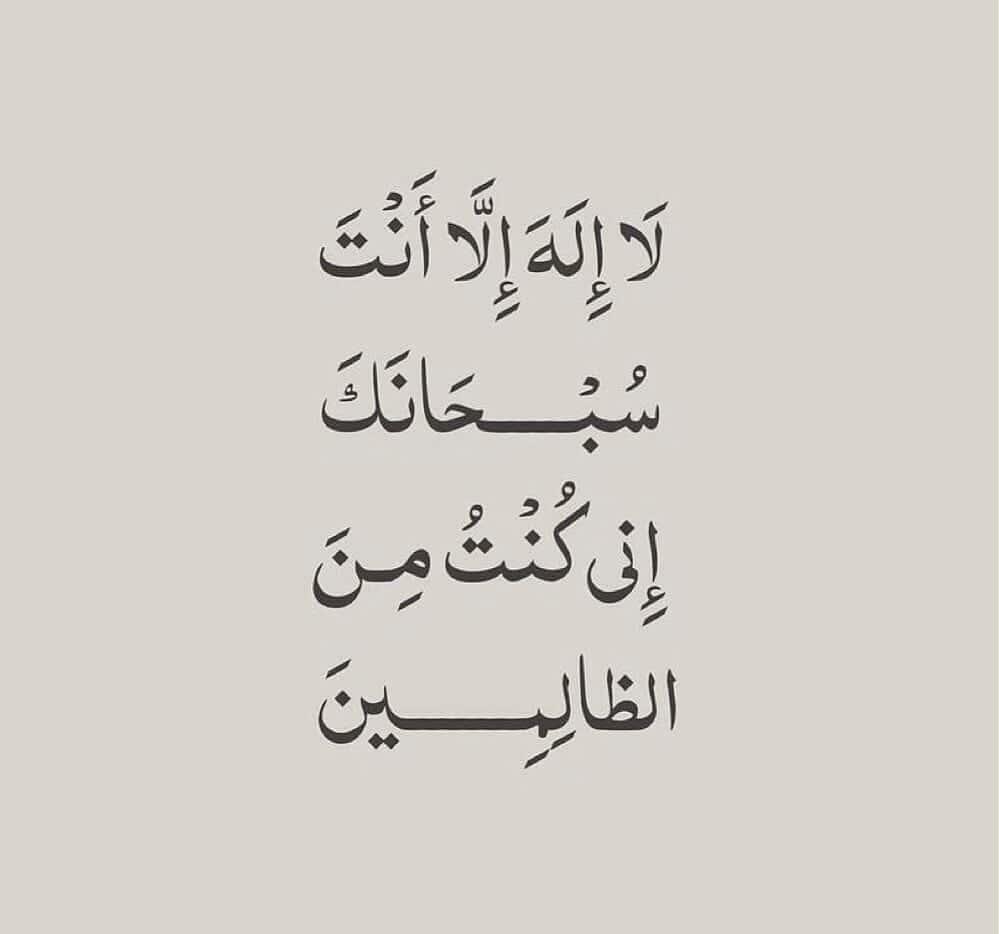 لَا إِلَهَ إِلَّا أَنْتَ
سُبْـــحَانَكَ
إِنى كُنْتُ مِـنَ
الظالِمِـــــينَ